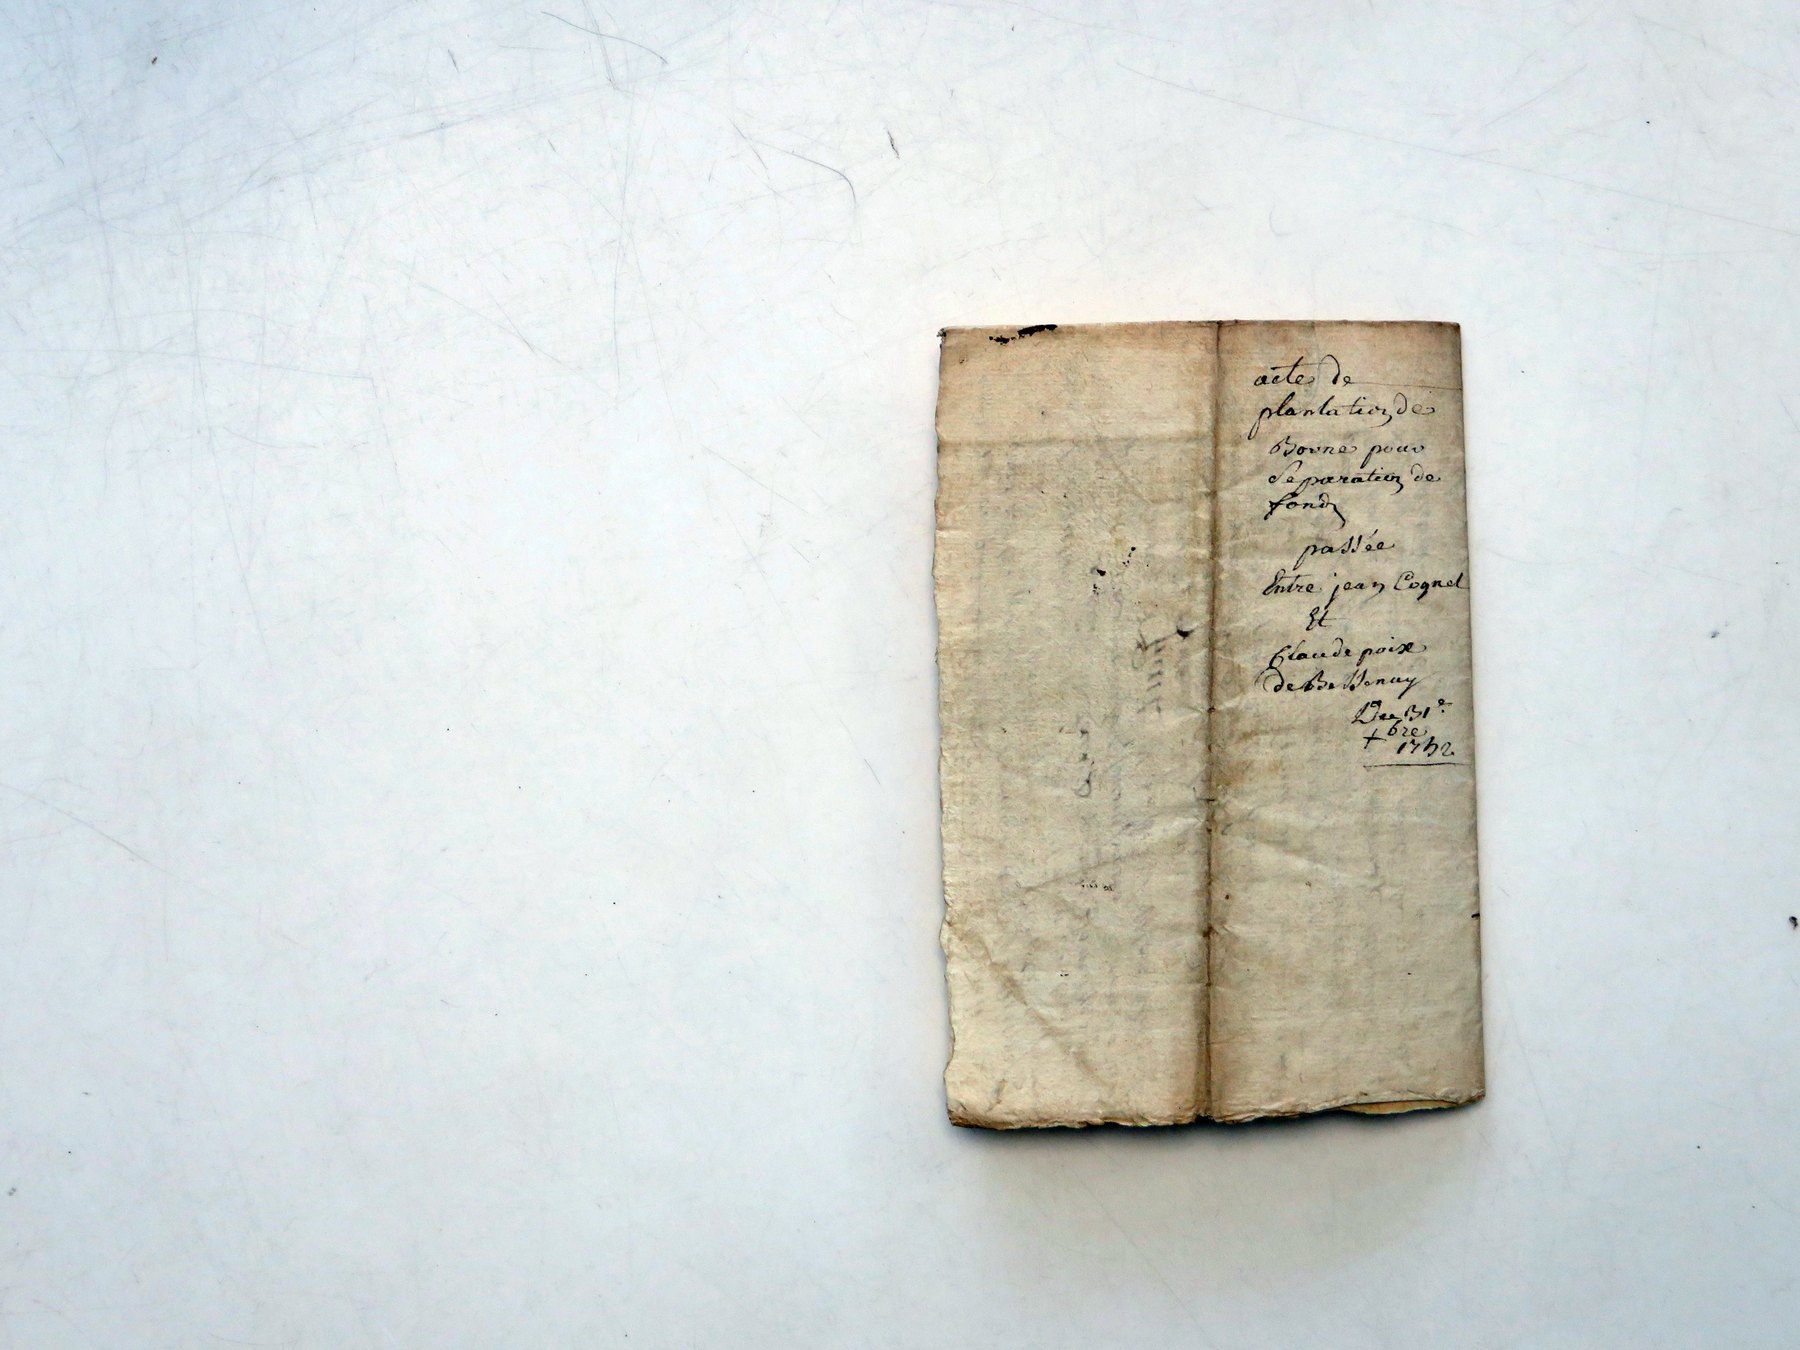 acte de
plantation de
Borne pour
Separation de
fond
passée
Entre jean Cognet
Et
Claude poix
de Bessenay
Du 31e
xbre